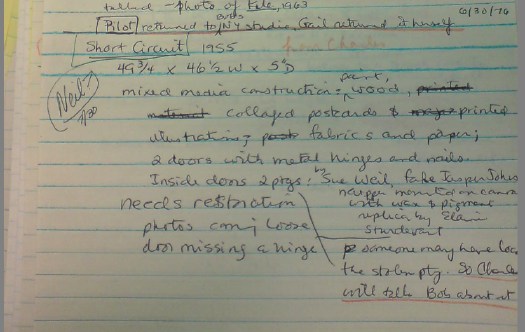 talked - photo of Eale, 1963
6/30/76
Pilot returned to Bob's NY studio, Gail returned it herself
Short Circuit 1955
from Charles
49 3/4 x 46 1/2 W x 5" D
Neil's
7/30
mixed media construction: paint, wood, printed
material collaged postcards & printed
illustrations; fabrics and paper;
2 doors with metal hinges and nails.
Inside doors 2 ptgs: by Sue Weil, fake Jasper Johns
on canvas
with wax & pigment
replica by Elaine
Sturdevant
needs restoration
photos coming loose
door missing a hinge
someone may have loc
the stolen ptg. So Charle
will talk Bob about it